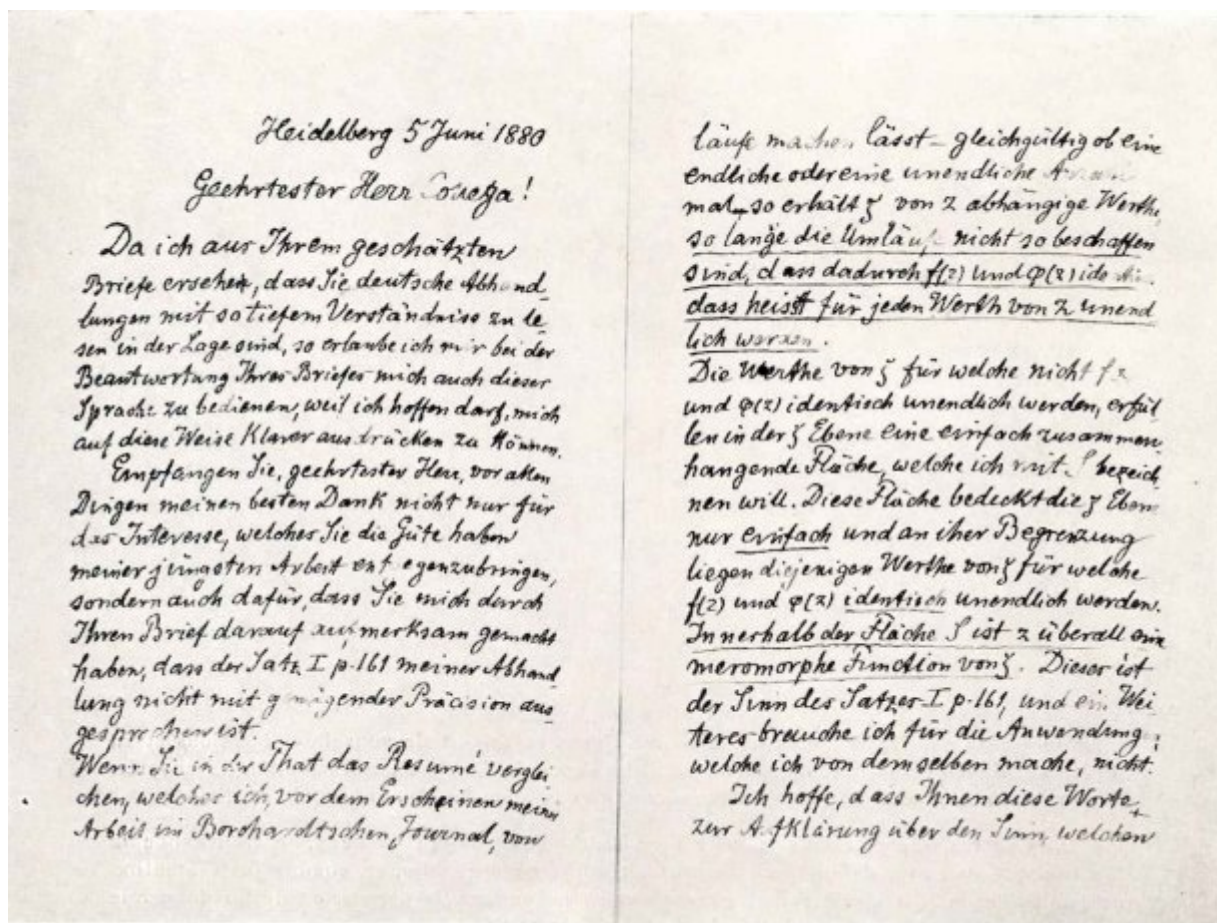 Heidelberg 5 Juni 1880
Geehrtester Herr
Da ich aus Ihrem geschätzten
Briefe ersehen, dass Sie deutsche Abhand
lungen mit so tiefem Verständniss zu le
sen in der Lage sind, so erlaube ich mir bei der
Beantwortung Ihres Briefes mich auch dieser
Sprache zu bedienen, weil ich hoffen darf, mich
auf diese Weise klarer ausdrücken zu können.
Empfangen Sie, geehrtester Herr, vor allen
Dingen meinen besten Dank nicht nur für
das Interesse, welches Sie die Güte haben
meiner jüngsten Arbeit entgegenzubringen,
sondern auch dafür, dass Sie mich durch
Ihren Brief darauf aufmerksam gemacht
haben, dass der Satz I p. 161 meiner Abhand
lung nicht mit genügender Präcision aus
gesprochen ist.
Wenn Sie in der That das Resumé verglei
chen, welches ich, vor dem Erscheinen meiner
Arbeit im Borchardtschen Journal, von
läufe machen lässt – gleichgültig ob eine
endliche oder eine unendliche
mal – so erhält ζ von z abhängige Werthe,
so lange die Umläufe nicht so beschaffen
sind, dass dadurch f(z) und φ(z)
dass heisst für jeden Werth von z unend
lich werden.
Die Werthe von ζ für welche nicht f z
und φ(z) identisch unendlich werden, erfül
len in der ζ Ebene eine einfach zusammen
hangende Fläche, welche ich mit S bezeich
nen will. Diese Fläche bedeckt die ζ Ebene
nur einfach und an iher Begrenzung
liegen diejenigen Werthe von ζ für welche
f(z) und φ(z) identisch unendlich werden.
Innerhalb der Fläche S ist z überall eine
meromorphe Function von ζ. Dieser ist
der Sinn des Satzes I p. 161, und ein Wei
teres brauche ich für die Anwendung,
welche ich von demselben mache, nicht.
Ich hoffe, dass Ihnen diese Worte
zur Aufklärung über den Sinn, welchen